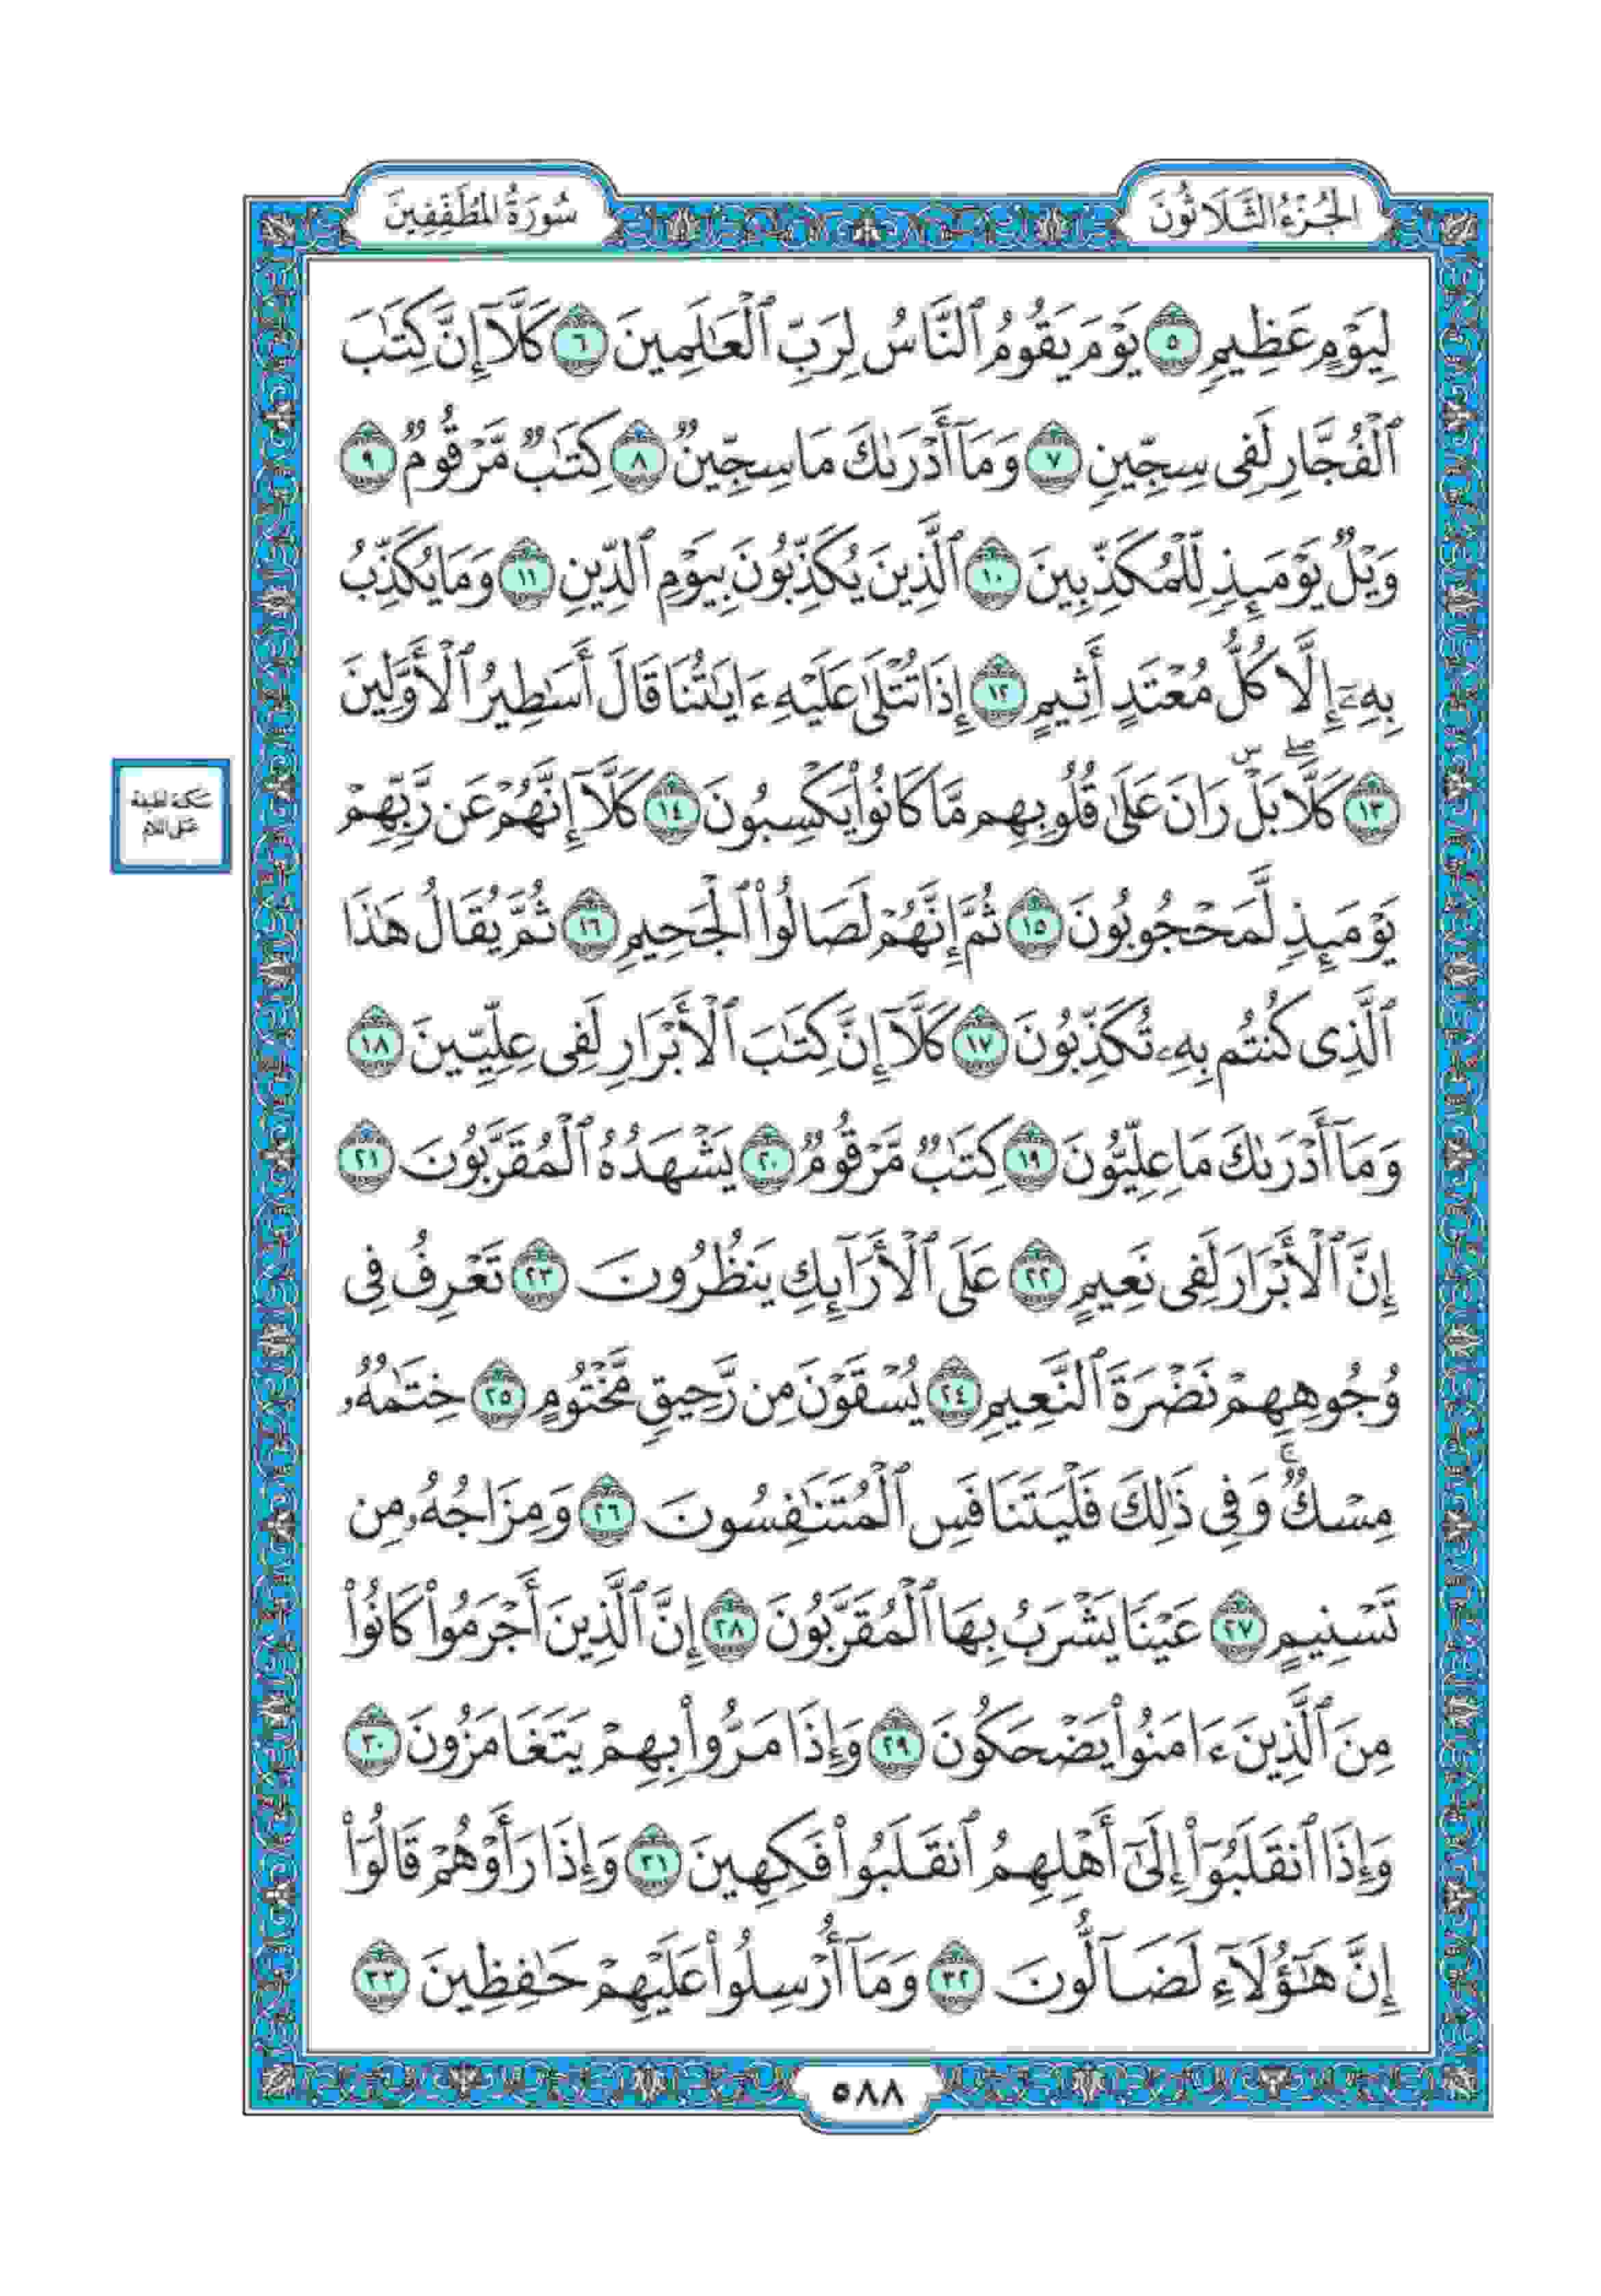 الجُزْءُ الثَّلَاثُونَ
سُورَةُ المُطَفِّفِينَ
لِيَوْمٍ عَظِيمٍ ٥ يَوْمَ يَقُومُ ٱلنَّاسُ لِرَبِّ ٱلْعَٰلَمِينَ ٦ كَلَّآ إِنَّ كِتَٰبَ
ٱلْفُجَّارِ لَفِى سِجِّينٍ ٧ وَمَآ أَدْرَىٰكَ مَا سِجِّينٌ ٨ كِتَٰبٌ مَّرْقُومٌ ٩
وَيْلٌ يَوْمَئِذٍ لِّلْمُكَذِّبِينَ ١٠ ٱلَّذِينَ يُكَذِّبُونَ بِيَوْمِ ٱلدِّينِ ١١ وَمَا يُكَذِّبُ
بِهِۦٓ إِلَّا كُلُّ مُعْتَدٍ أَثِيمٍ ١٢ إِذَا تُتْلَىٰ عَلَيْهِ ءَايَٰتُنَا قَالَ أَسَٰطِيرُ ٱلْأَوَّلِينَ
١٣ كَلَّا ۖ بَلْ ۜ رَانَ عَلَىٰ قُلُوبِهِم مَّا كَانُوا۟ يَكْسِبُونَ ١٤ كَلَّآ إِنَّهُمْ عَن رَّبِّهِمْ
يَوْمَئِذٍ لَّمَحْجُوبُونَ ١٥ ثُمَّ إِنَّهُمْ لَصَالُوا۟ ٱلْجَحِيمِ ١٦ ثُمَّ يُقَالُ هَٰذَا
ٱلَّذِى كُنتُم بِهِۦ تُكَذِّبُونَ ١٧ كَلَّآ إِنَّ كِتَٰبَ ٱلْأَبْرَارِ لَفِى عِلِّيِّينَ ١٨
وَمَآ أَدْرَىٰكَ مَا عِلِّيُّونَ ١٩ كِتَٰبٌ مَّرْقُومٌ ٢٠ يَشْهَدُهُ ٱلْمُقَرَّبُونَ ٢١
إِنَّ ٱلْأَبْرَارَ لَفِى نَعِيمٍ ٢٢ عَلَى ٱلْأَرَآئِكِ يَنظُرُونَ ٢٣ تَعْرِفُ فِى
وُجُوهِهِمْ نَضْرَةَ ٱلنَّعِيمِ ٢٤ يُسْقَوْنَ مِن رَّحِيقٍ مَّخْتُومٍ ٢٥ خِتَٰمُهُۥ
مِسْكٌ ۚ وَفِى ذَٰلِكَ فَلْيَتَنَافَسِ ٱلْمُتَنَٰفِسُونَ ٢٦ وَمِزَاجُهُۥ مِن
تَسْنِيمٍ ٢٧ عَيْنًا يَشْرَبُ بِهَا ٱلْمُقَرَّبُونَ ٢٨ إِنَّ ٱلَّذِينَ أَجْرَمُوا۟ كَانُوا۟
مِنَ ٱلَّذِينَ ءَامَنُوا۟ يَضْحَكُونَ ٢٩ وَإِذَا مَرُّوا۟ بِهِمْ يَتَغَامَزُونَ ٣٠
وَإِذَا ٱنقَلَبُوٓا۟ إِلَىٰٓ أَهْلِهِمُ ٱنقَلَبُوا۟ فَكِهِينَ ٣١ وَإِذَا رَأَوْهُمْ قَالُوٓا۟
إِنَّ هَٰٓؤُلَآءِ لَضَآلُّونَ ٣٢ وَمَآ أُرْسِلُوا۟ عَلَيْهِمْ حَٰفِظِينَ ٣٣
سَكتة لطيفة
عَلى اللام
٥٨٨